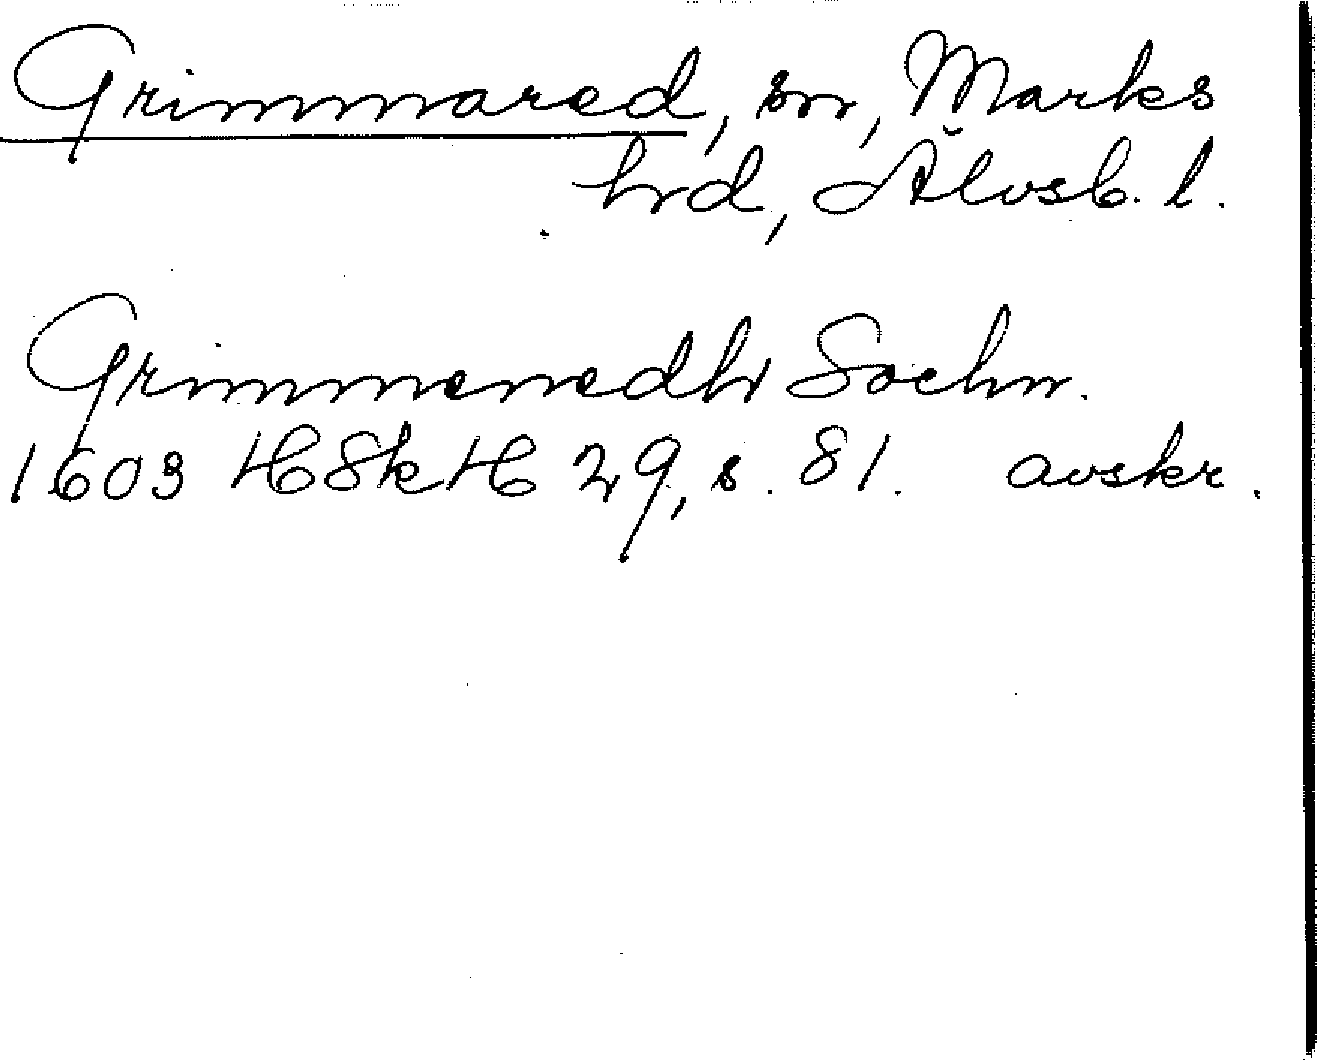 Grimmared, sn, Marks
hrd, Älvsb. l.
Grimmenedh Sochn.
1603 HSkH 29, s. 81. avskr.